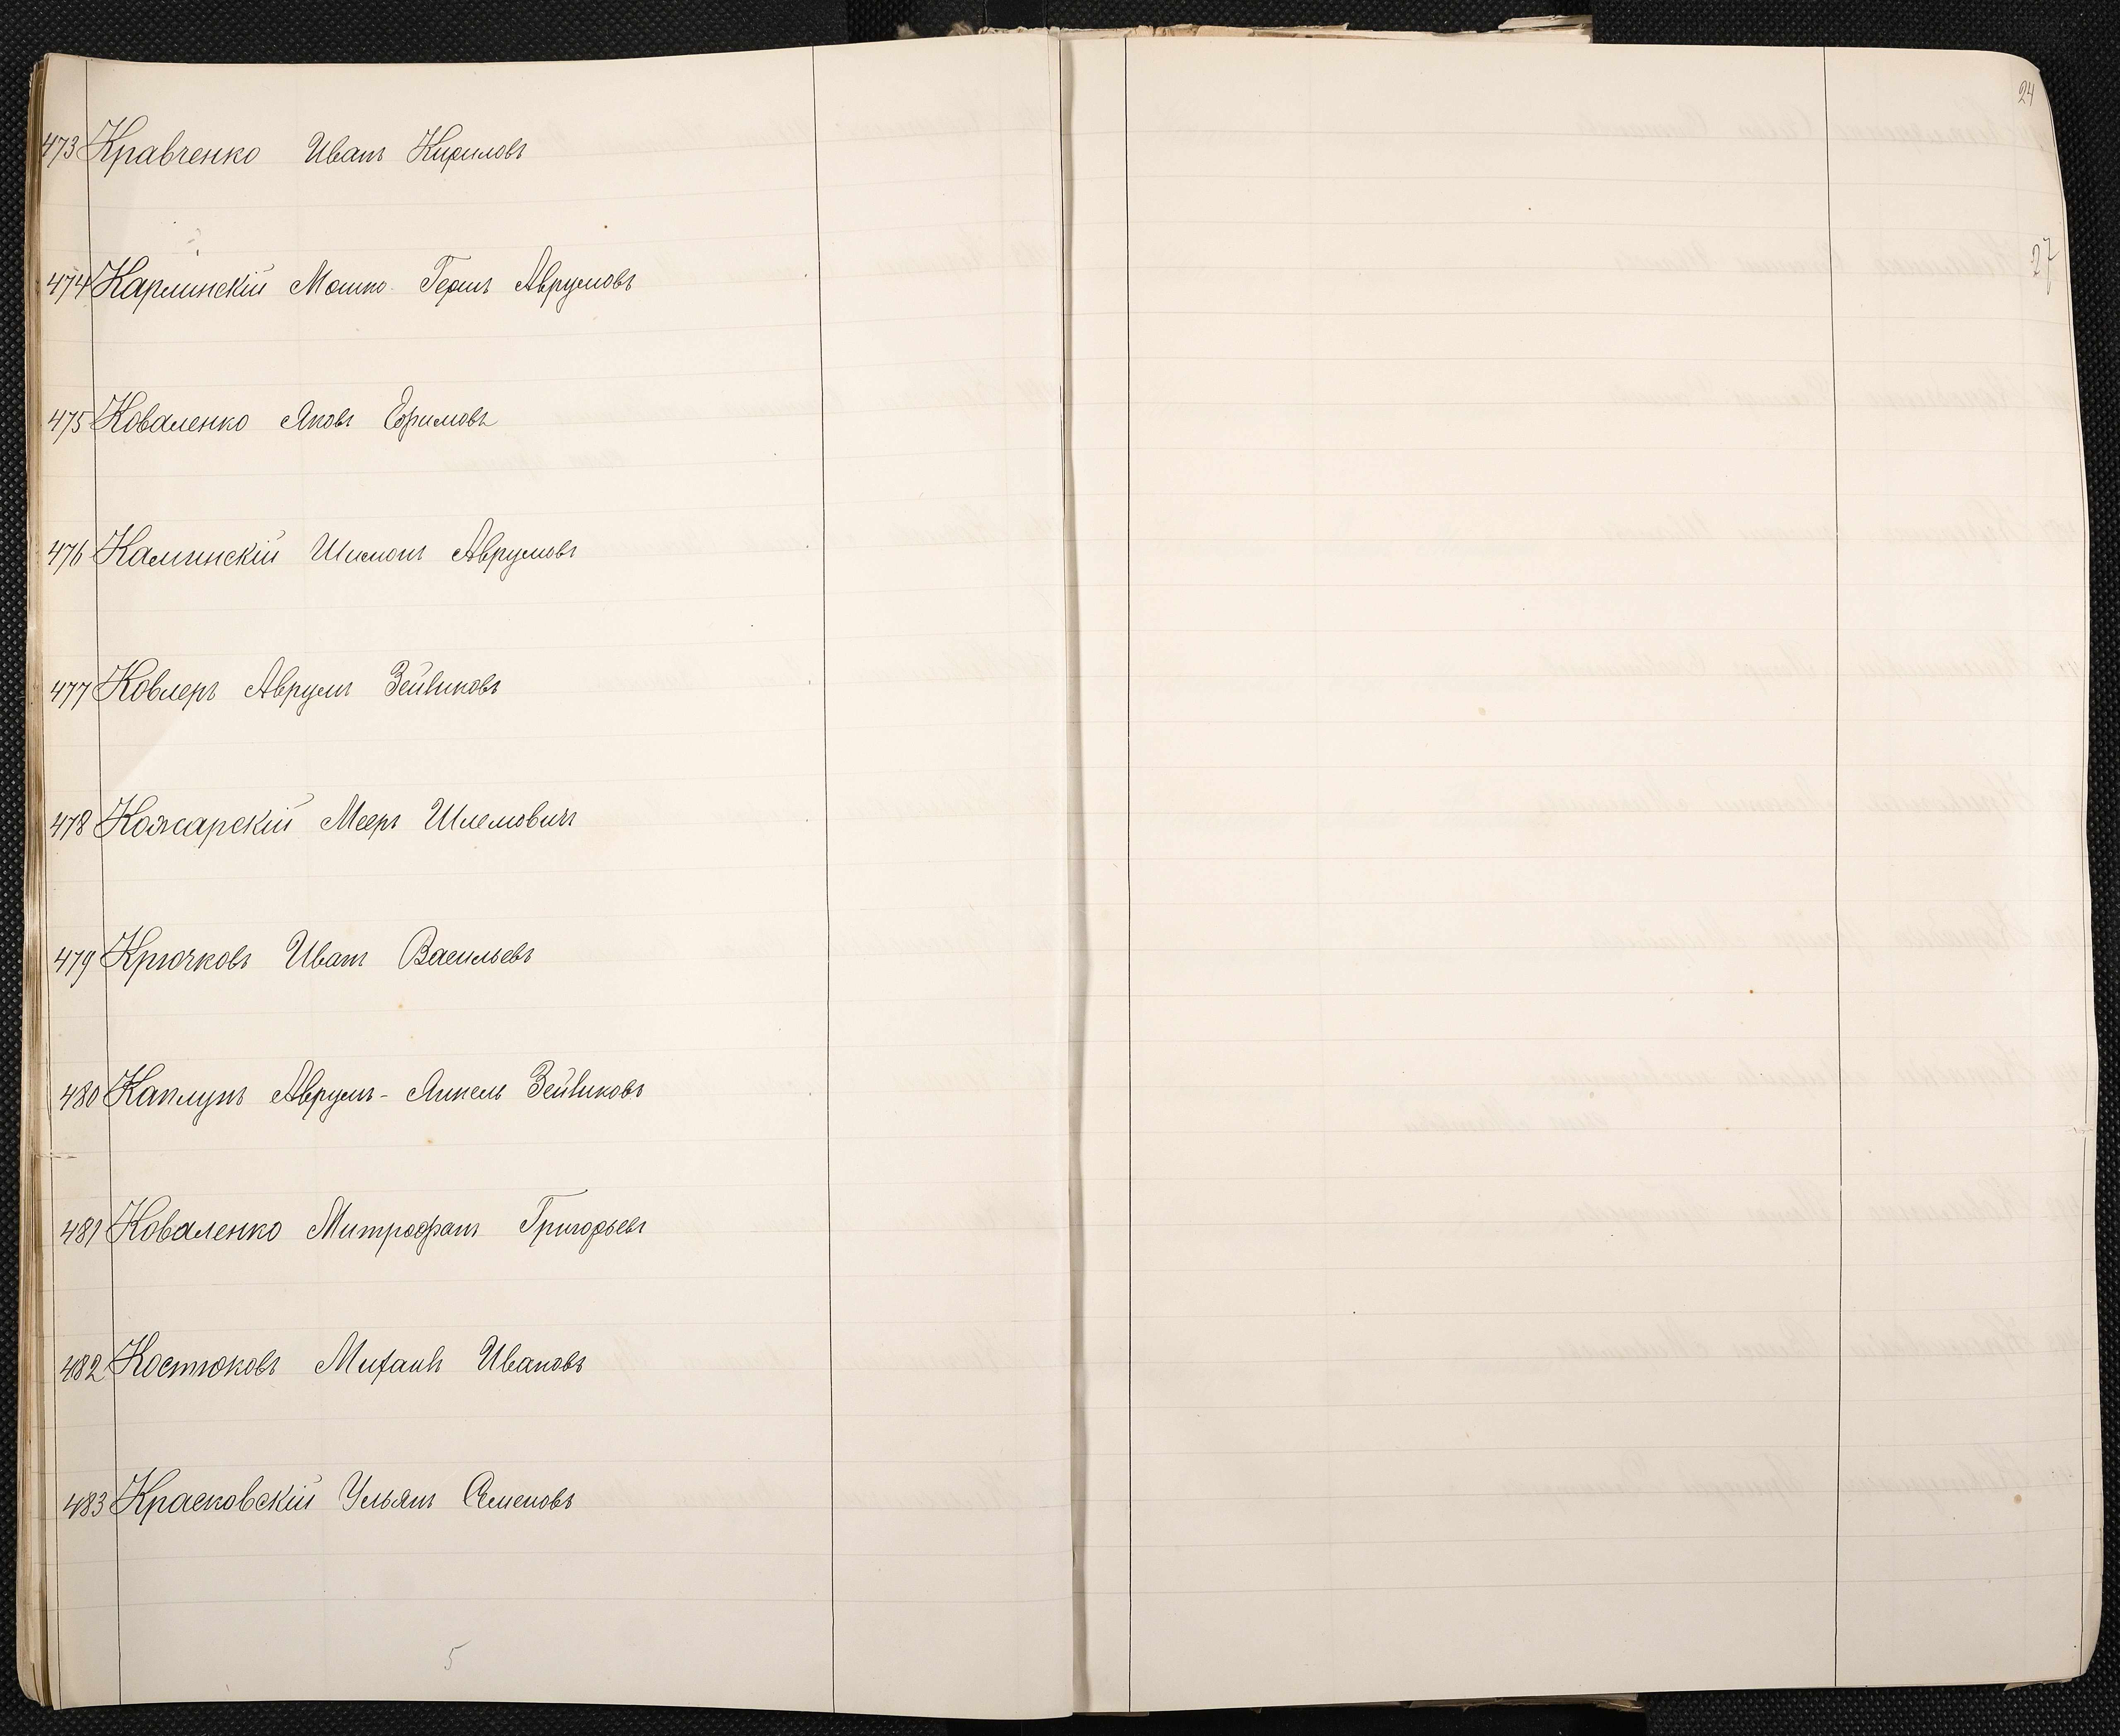 473 Кравченко Иванъ Кириловъ
474 Карлинскій Мошко Гершъ Аврумовъ
475 Коваленко Яковъ Ефимовъ
476 Калинскій Шимонъ Аврумовъ
477 Ковлеръ Аврумъ Зейликовъ
478 Кожарскій Мееръ Шлемовичъ
479 Крючковъ Иванъ Васильевъ
480 Каплунъ Аврумъ-Анкель Зейликовъ
481 Коваленко Митрофанъ Григорьевъ
482 Костюковъ Михаилъ Ивановъ
483 Красковскій Ульянъ Семеновъ
5
24
27